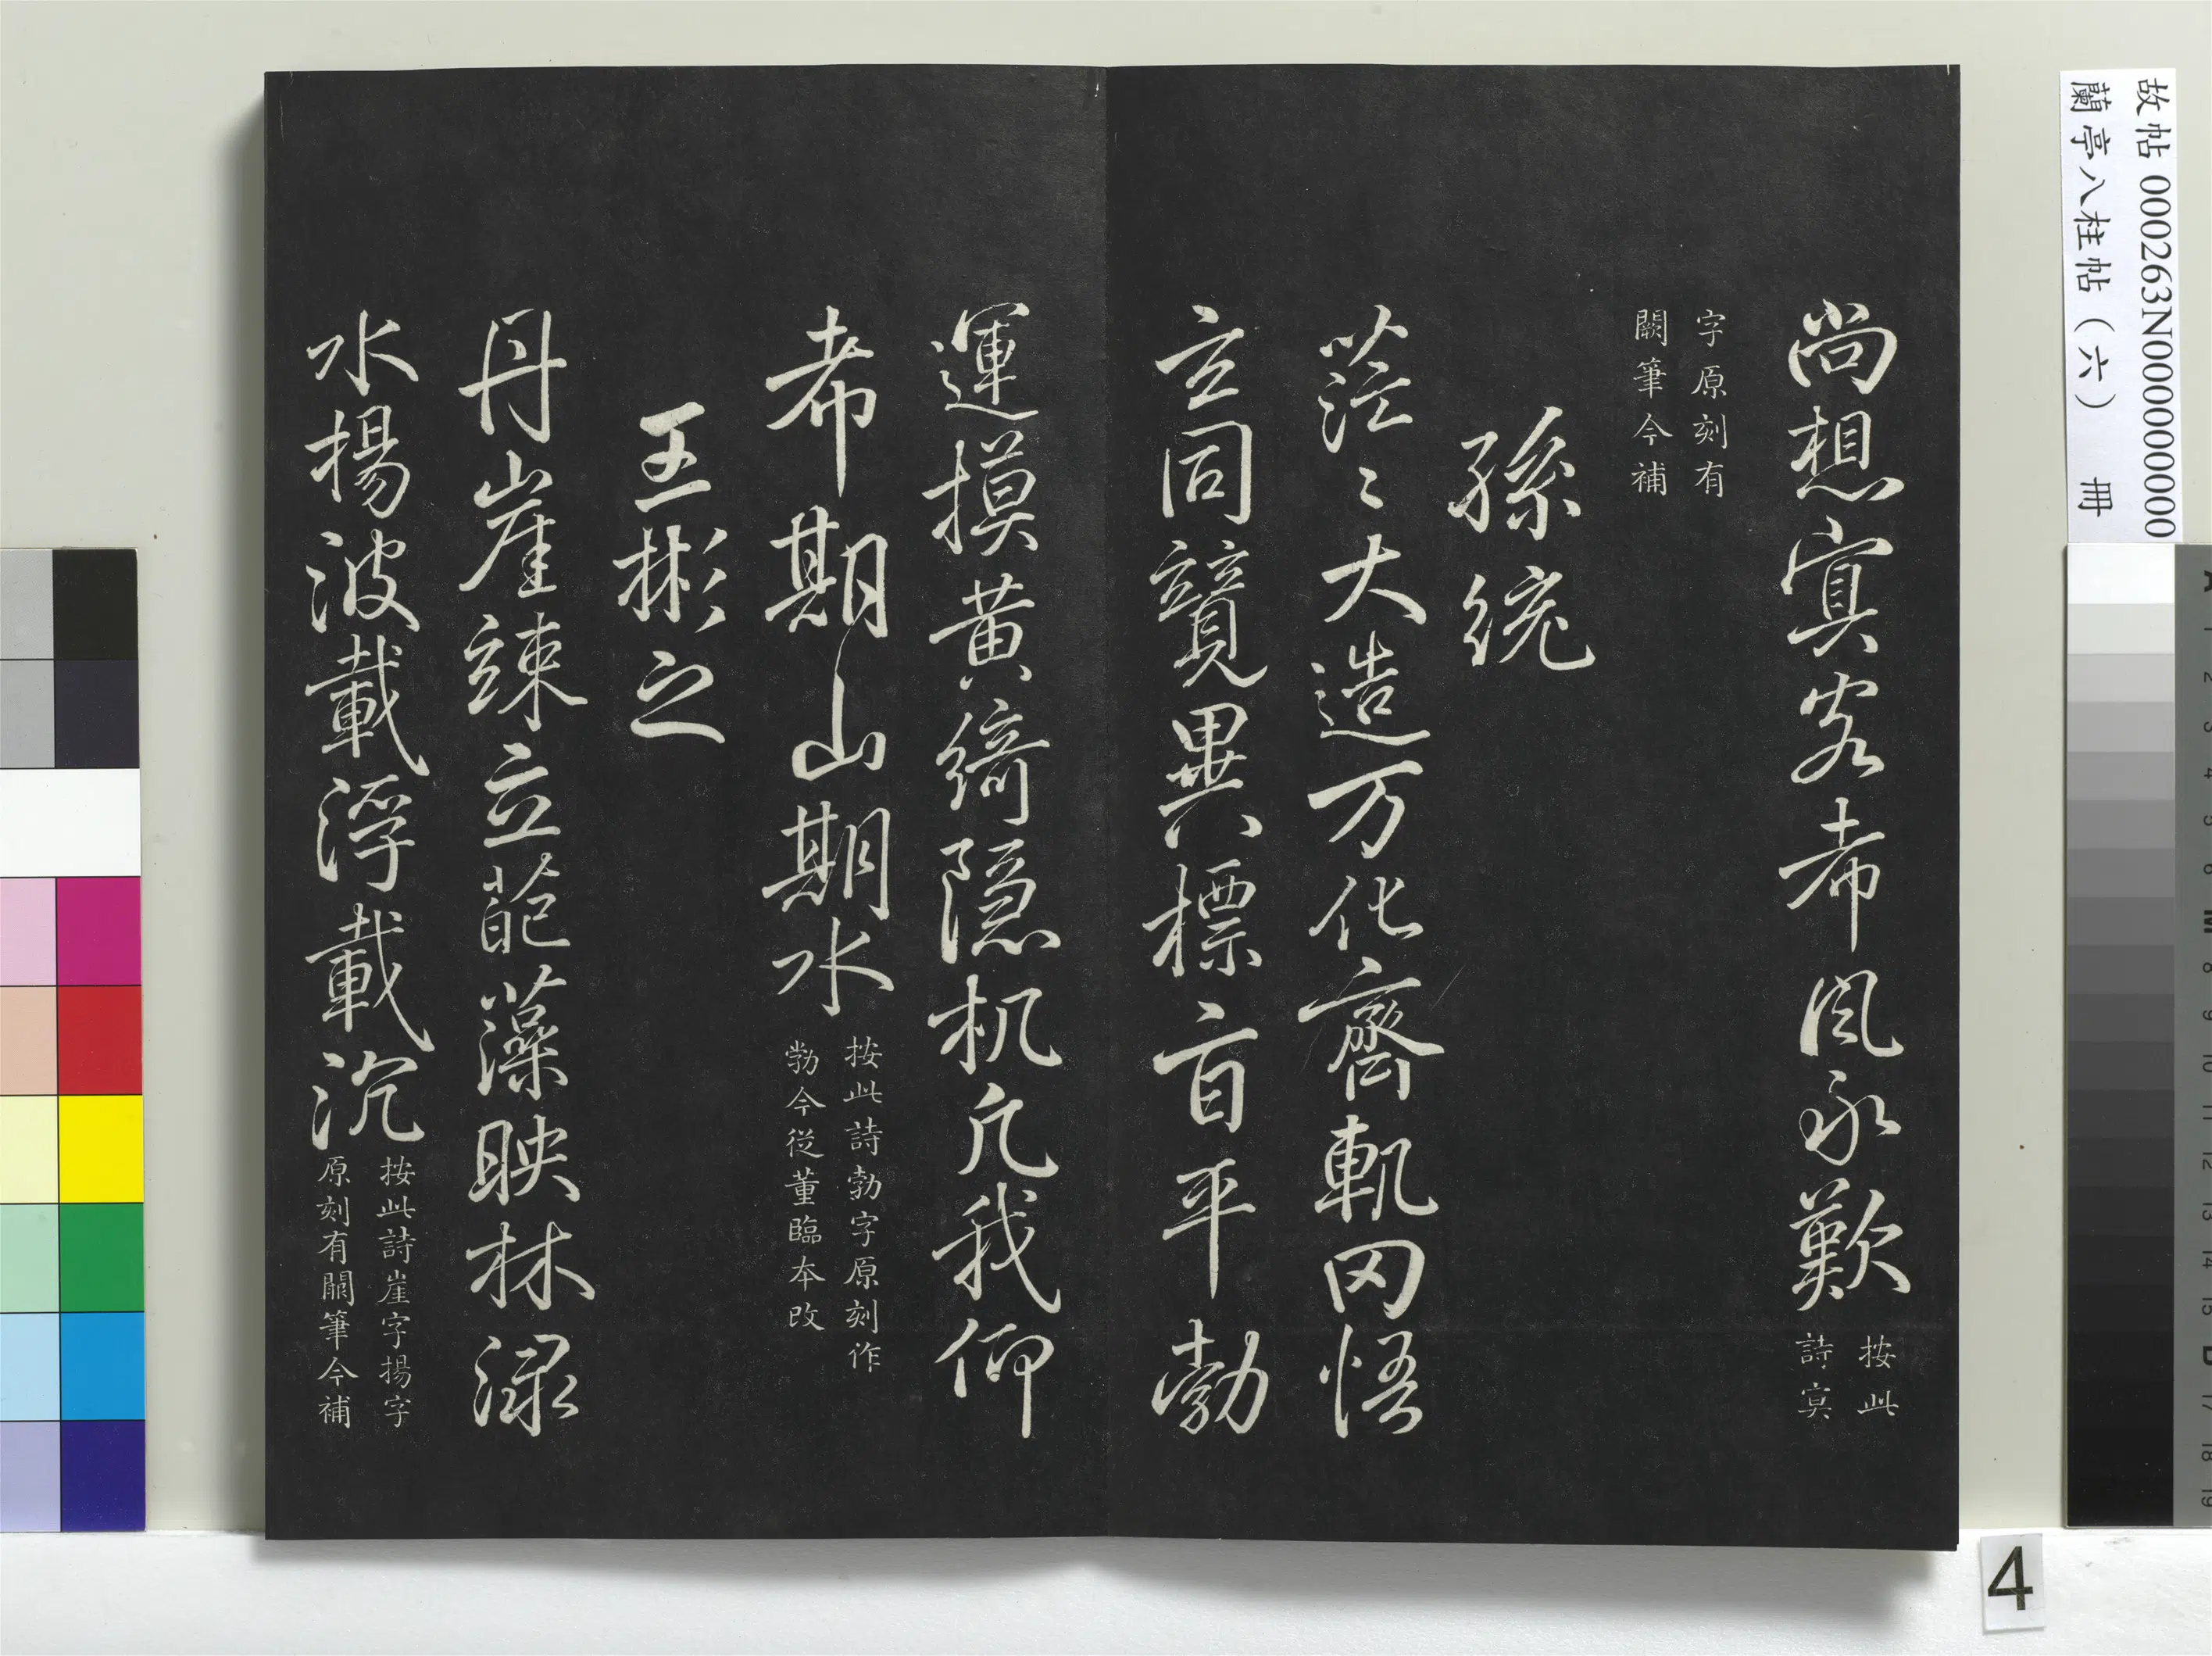 尚想㝠客希風永歎按此
詩㝠
字原刻有
闕筆今補
孫統
茫〻大造万化齊軌罔悟
玄同競異標旨平勃
運摸黃綺隱机凡我仰
希期山期水按此詩勃字原刻作
勃今從董臨本改
王彬之
丹崖竦立葩藻映林渌
水揚波載浮載沉按此詩崖字揚字
原刻有闕筆今補
故帖 000263N000000000
蘭亭八柱帖（六） 冊
4